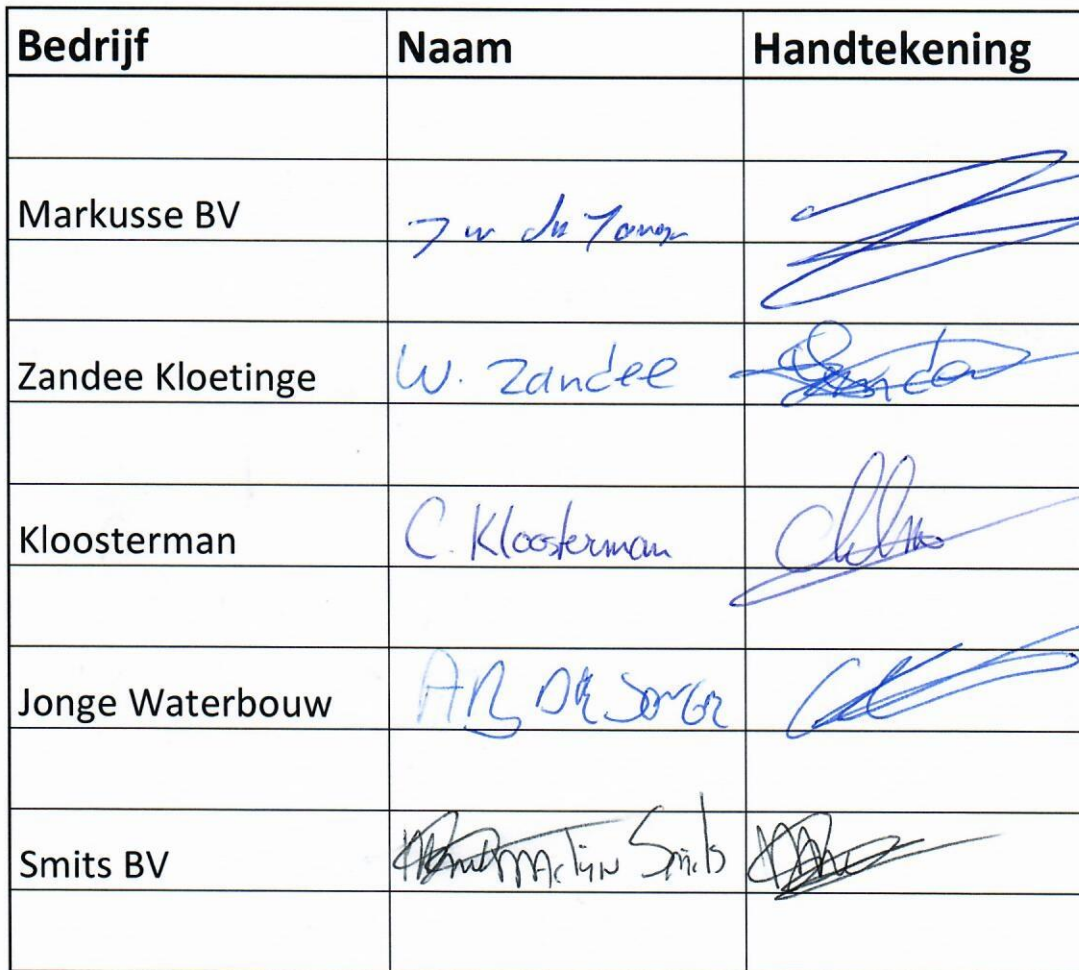 Bedrijf Naam Handtekening
Markusse BV de Jonge
Zandee Kloetinge W. Zandee
Kloosterman C. Kloosterman
Jonge Waterbouw AB DE JONGE
Smits BV Smits